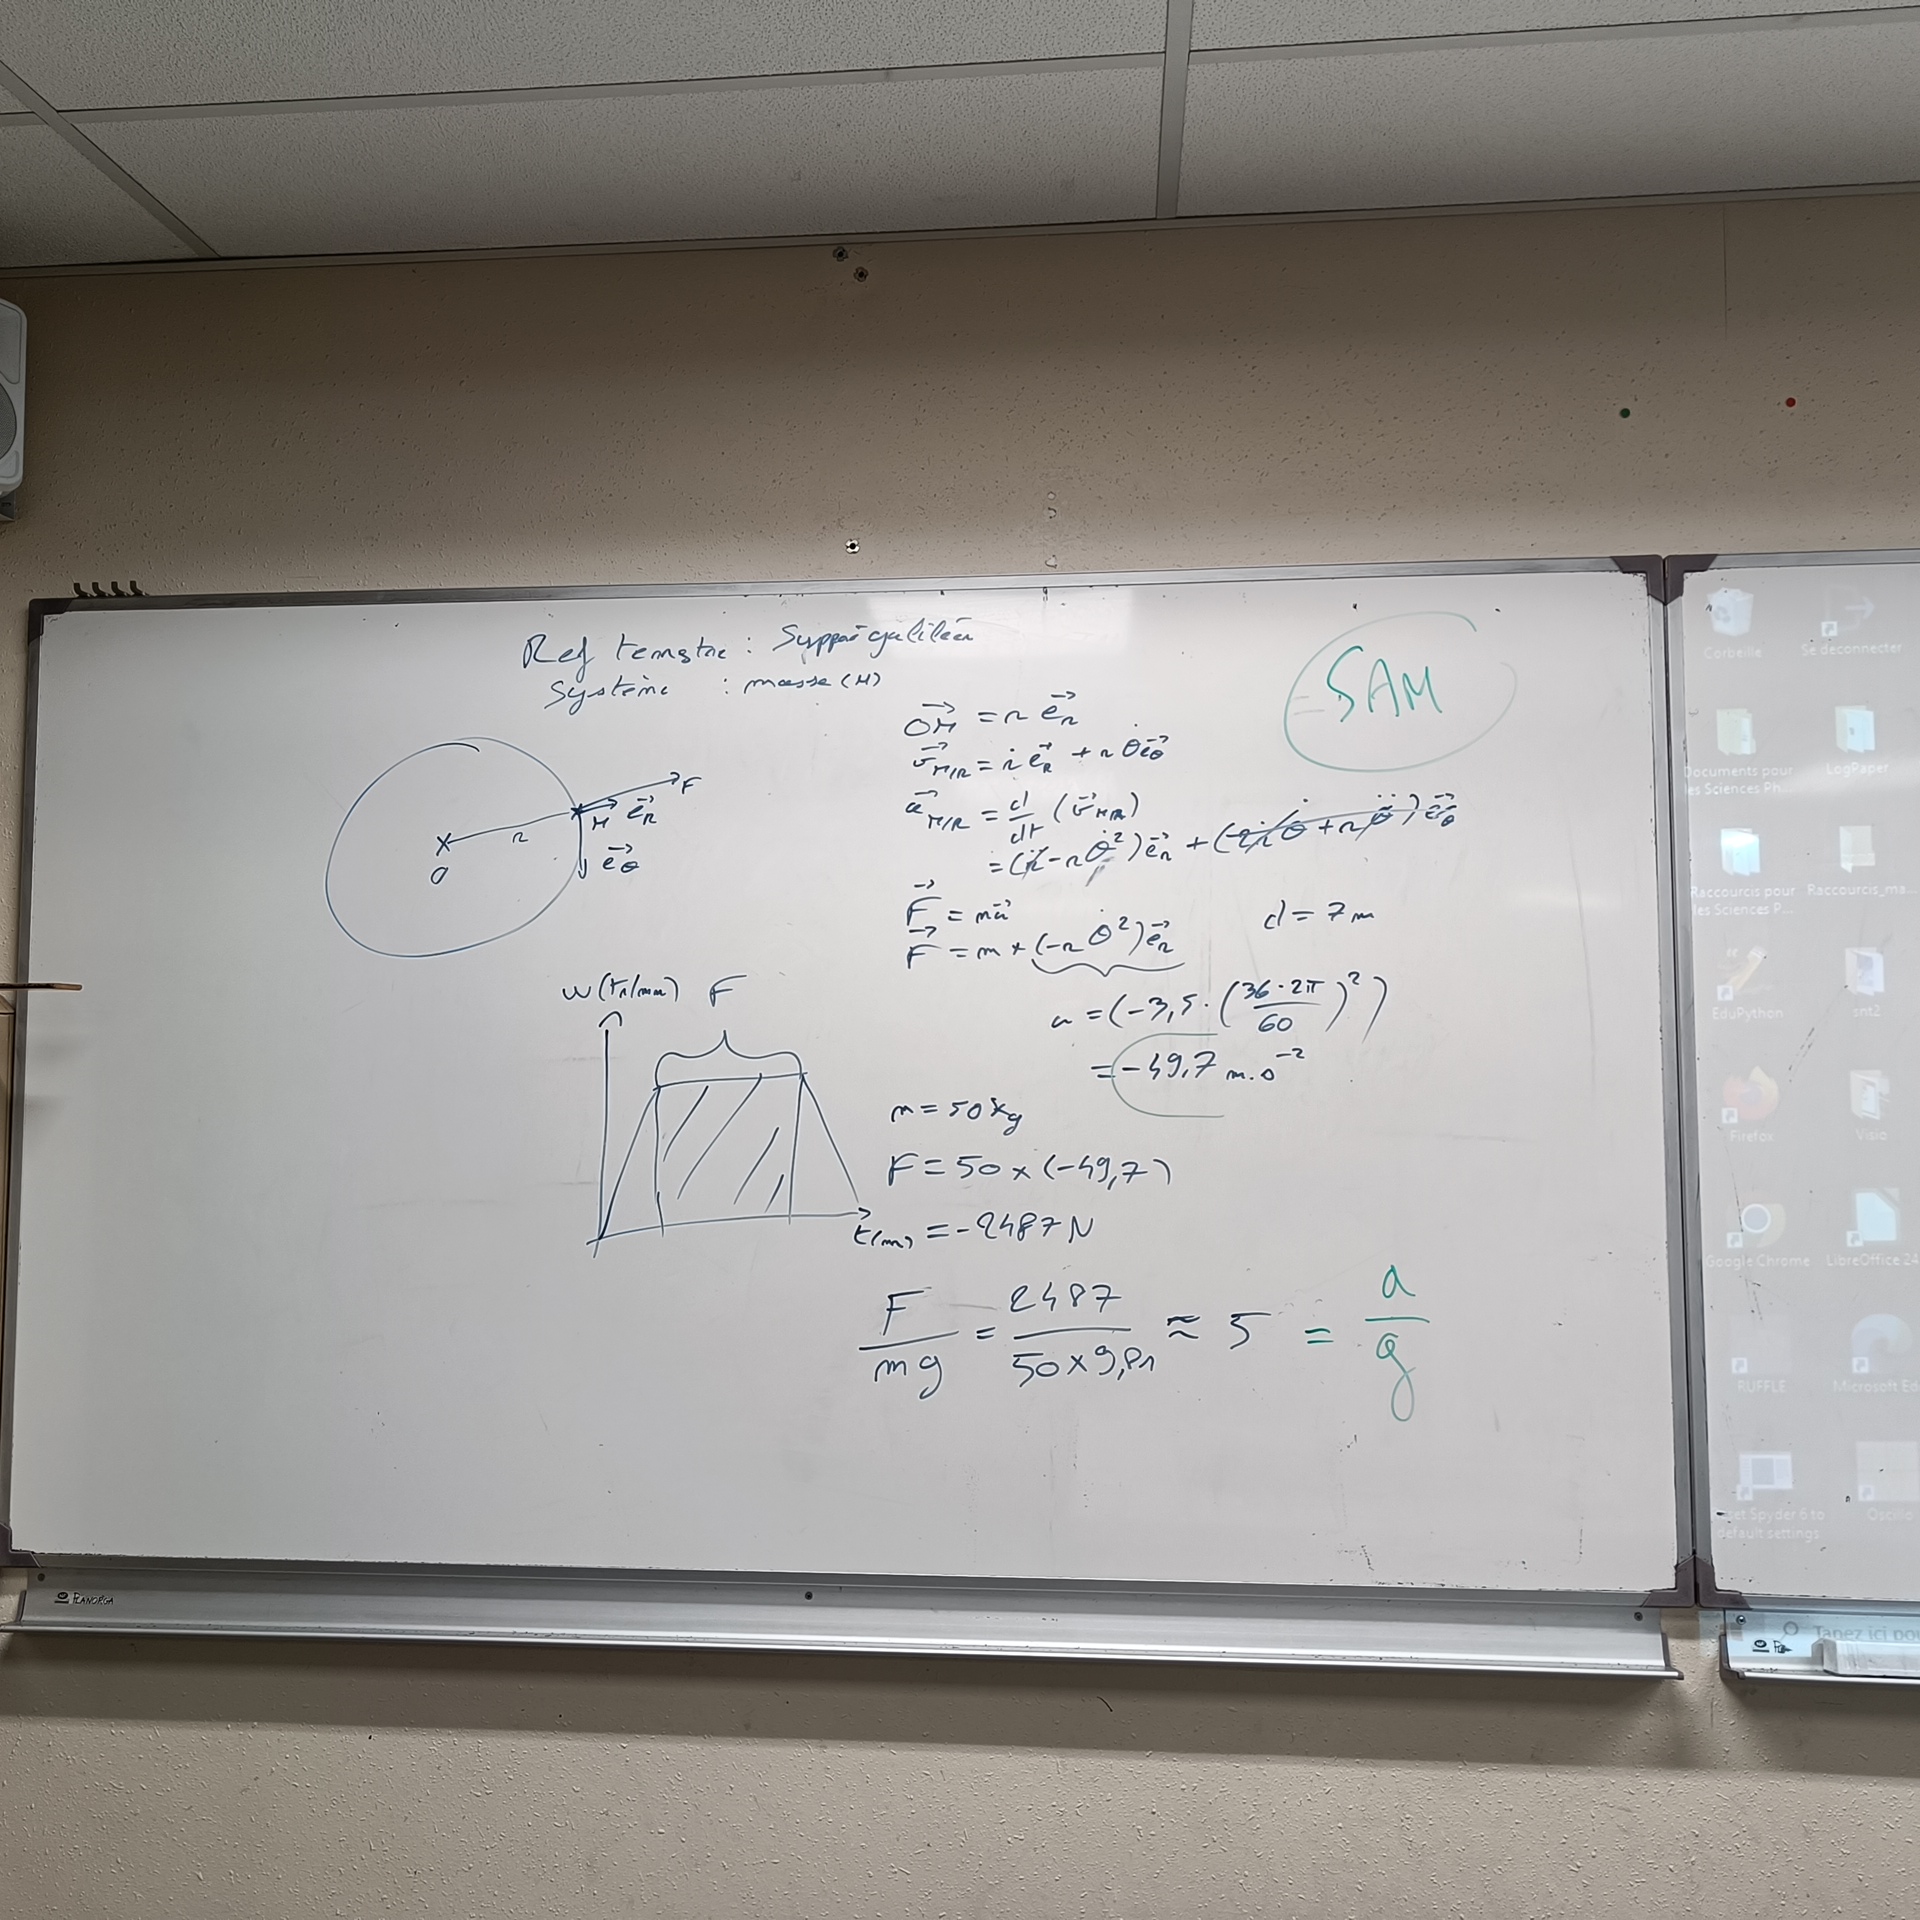 Ref terrestre : Supposé galiléen
Système : masse (M)
SAM
O
r
M
e⃗r
F
e⃗θ
OM⃗ = r e⃗r
v⃗M/R = ṙ e⃗r + r θ̇ e⃗θ
a⃗M/R = d/dt (v⃗M/R)
= (r̈ - r θ̇²) e⃗r + (2ṙθ̇ + r θ̈) e⃗θ
F⃗ = ma⃗
F⃗ = m × (-r θ̇²) e⃗r
d = 7 m
a = (-3,5 · (36 · 2π / 60)²)
= -49,7 m.s⁻²
ω (tr/min) F
t(m)
m = 50 kg
F = 50 × (-49,7)
= -2487 N
F/mg = 2487/50×9,81 ≈ 5 = a/g
PLANORGA
Corbeille
Se déconnecter
Documents pour
les Sciences Ph...
LogPaper
Raccourcis pour
les Sciences P...
Raccourcis_ma...
EduPython
snt2
Firefox
Visio
Google Chrome
LibreOffice 24
RUFFLE
Microsoft Ed
Spyder 6 to
default settings
Tapez ici pou